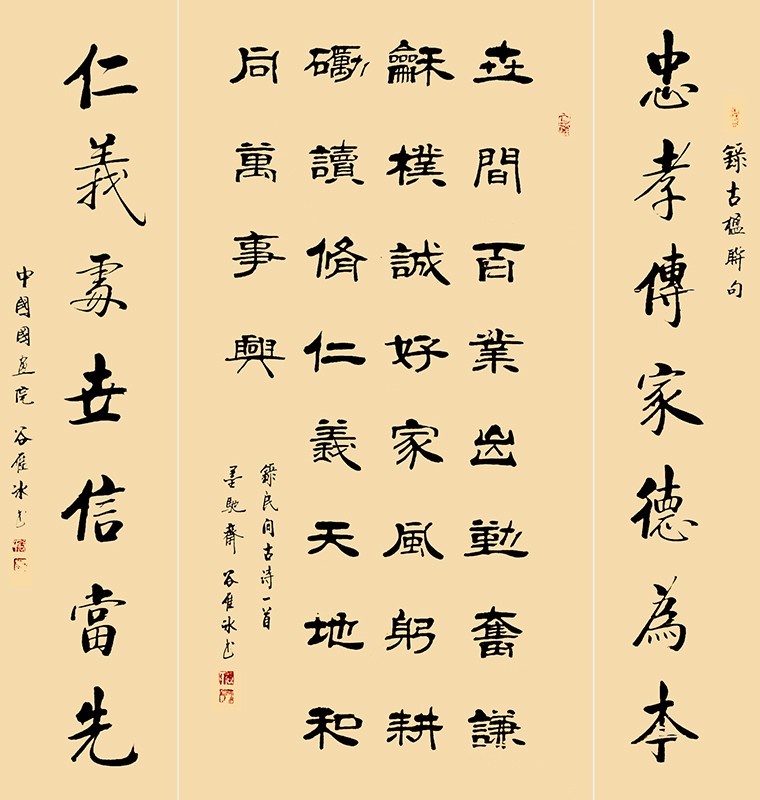 錄古楹聯句
忠孝傳家德為本
世間百業出勤奮謙
龢樸誠好家風躬耕
礪讀脩仁義天地和
同萬事興
錄民間古詩一首
墨馳齋 谷雁冰书
仁義處世信當先
中國國畫院 谷雁冰书